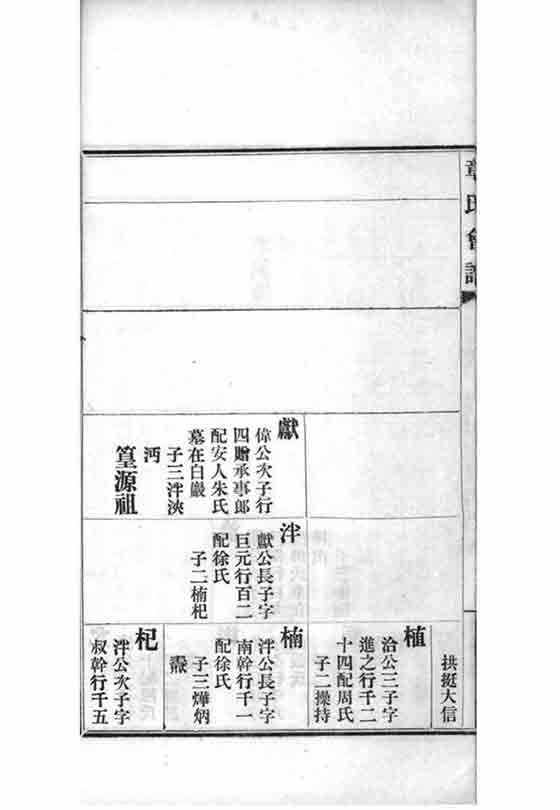 章氏會譜
獻
偉公次子行
四贈承事郎
配安人朱氏
墓在白巖
子三泮浹
沔
篁源祖
泮
獻公長子字
巨元行百二
配徐氏
子二楠杞
拱挺大信
植
洽公三子字
進之行千二
十四配周氏
子二操持
楠
泮公長子字
南幹行千一
配徐氏
子三燁炳
杞
泮公次子字
叔幹行千五